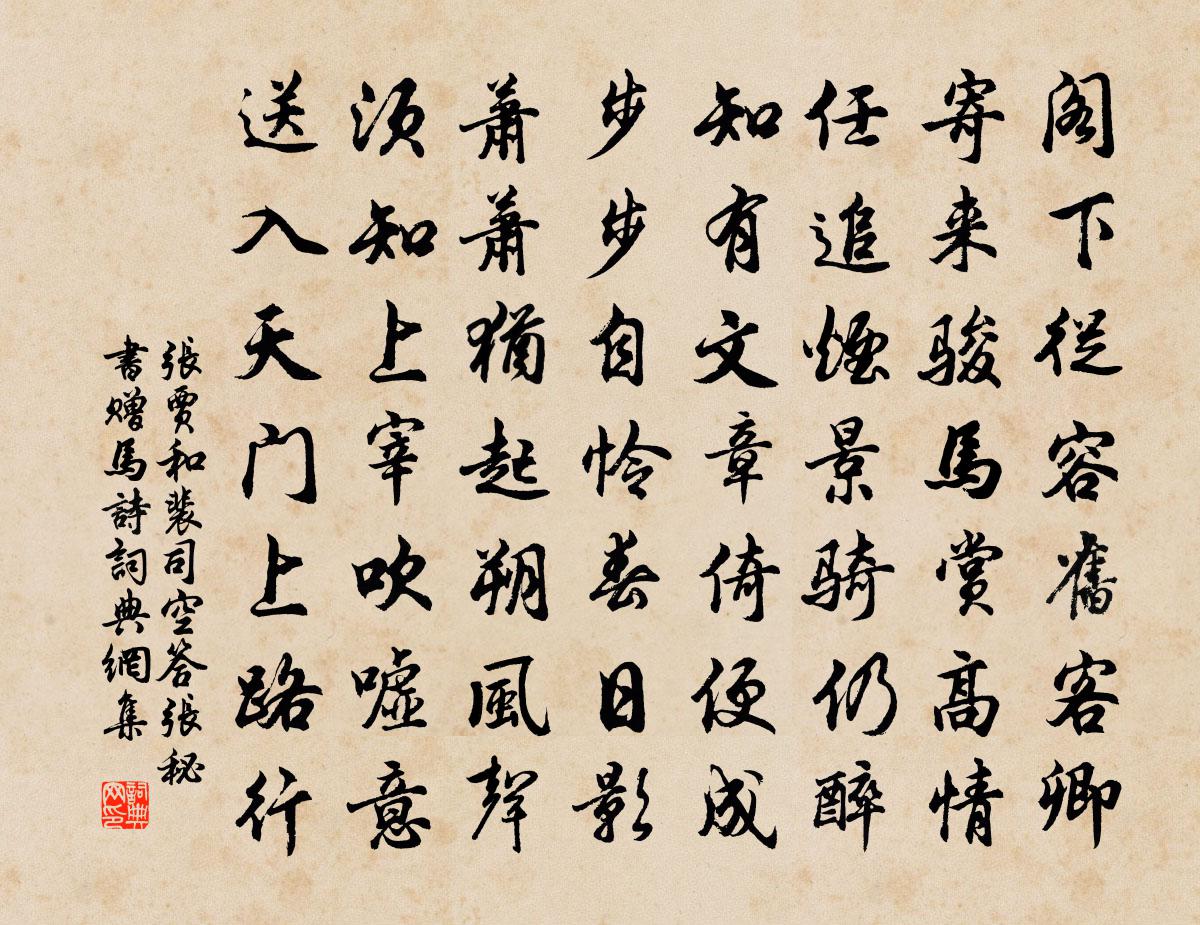 阁下從容舊客卿
寄来骏馬赏高情
任追煙景骑仍醉
知有文章倚便成
步步自怜春日影
萧萧犹起朔風聲
须知上宰吹嘘意
送入天门上路行
張賈和裴司空答張秘
書赠馬詩詞典網集
詞典网印